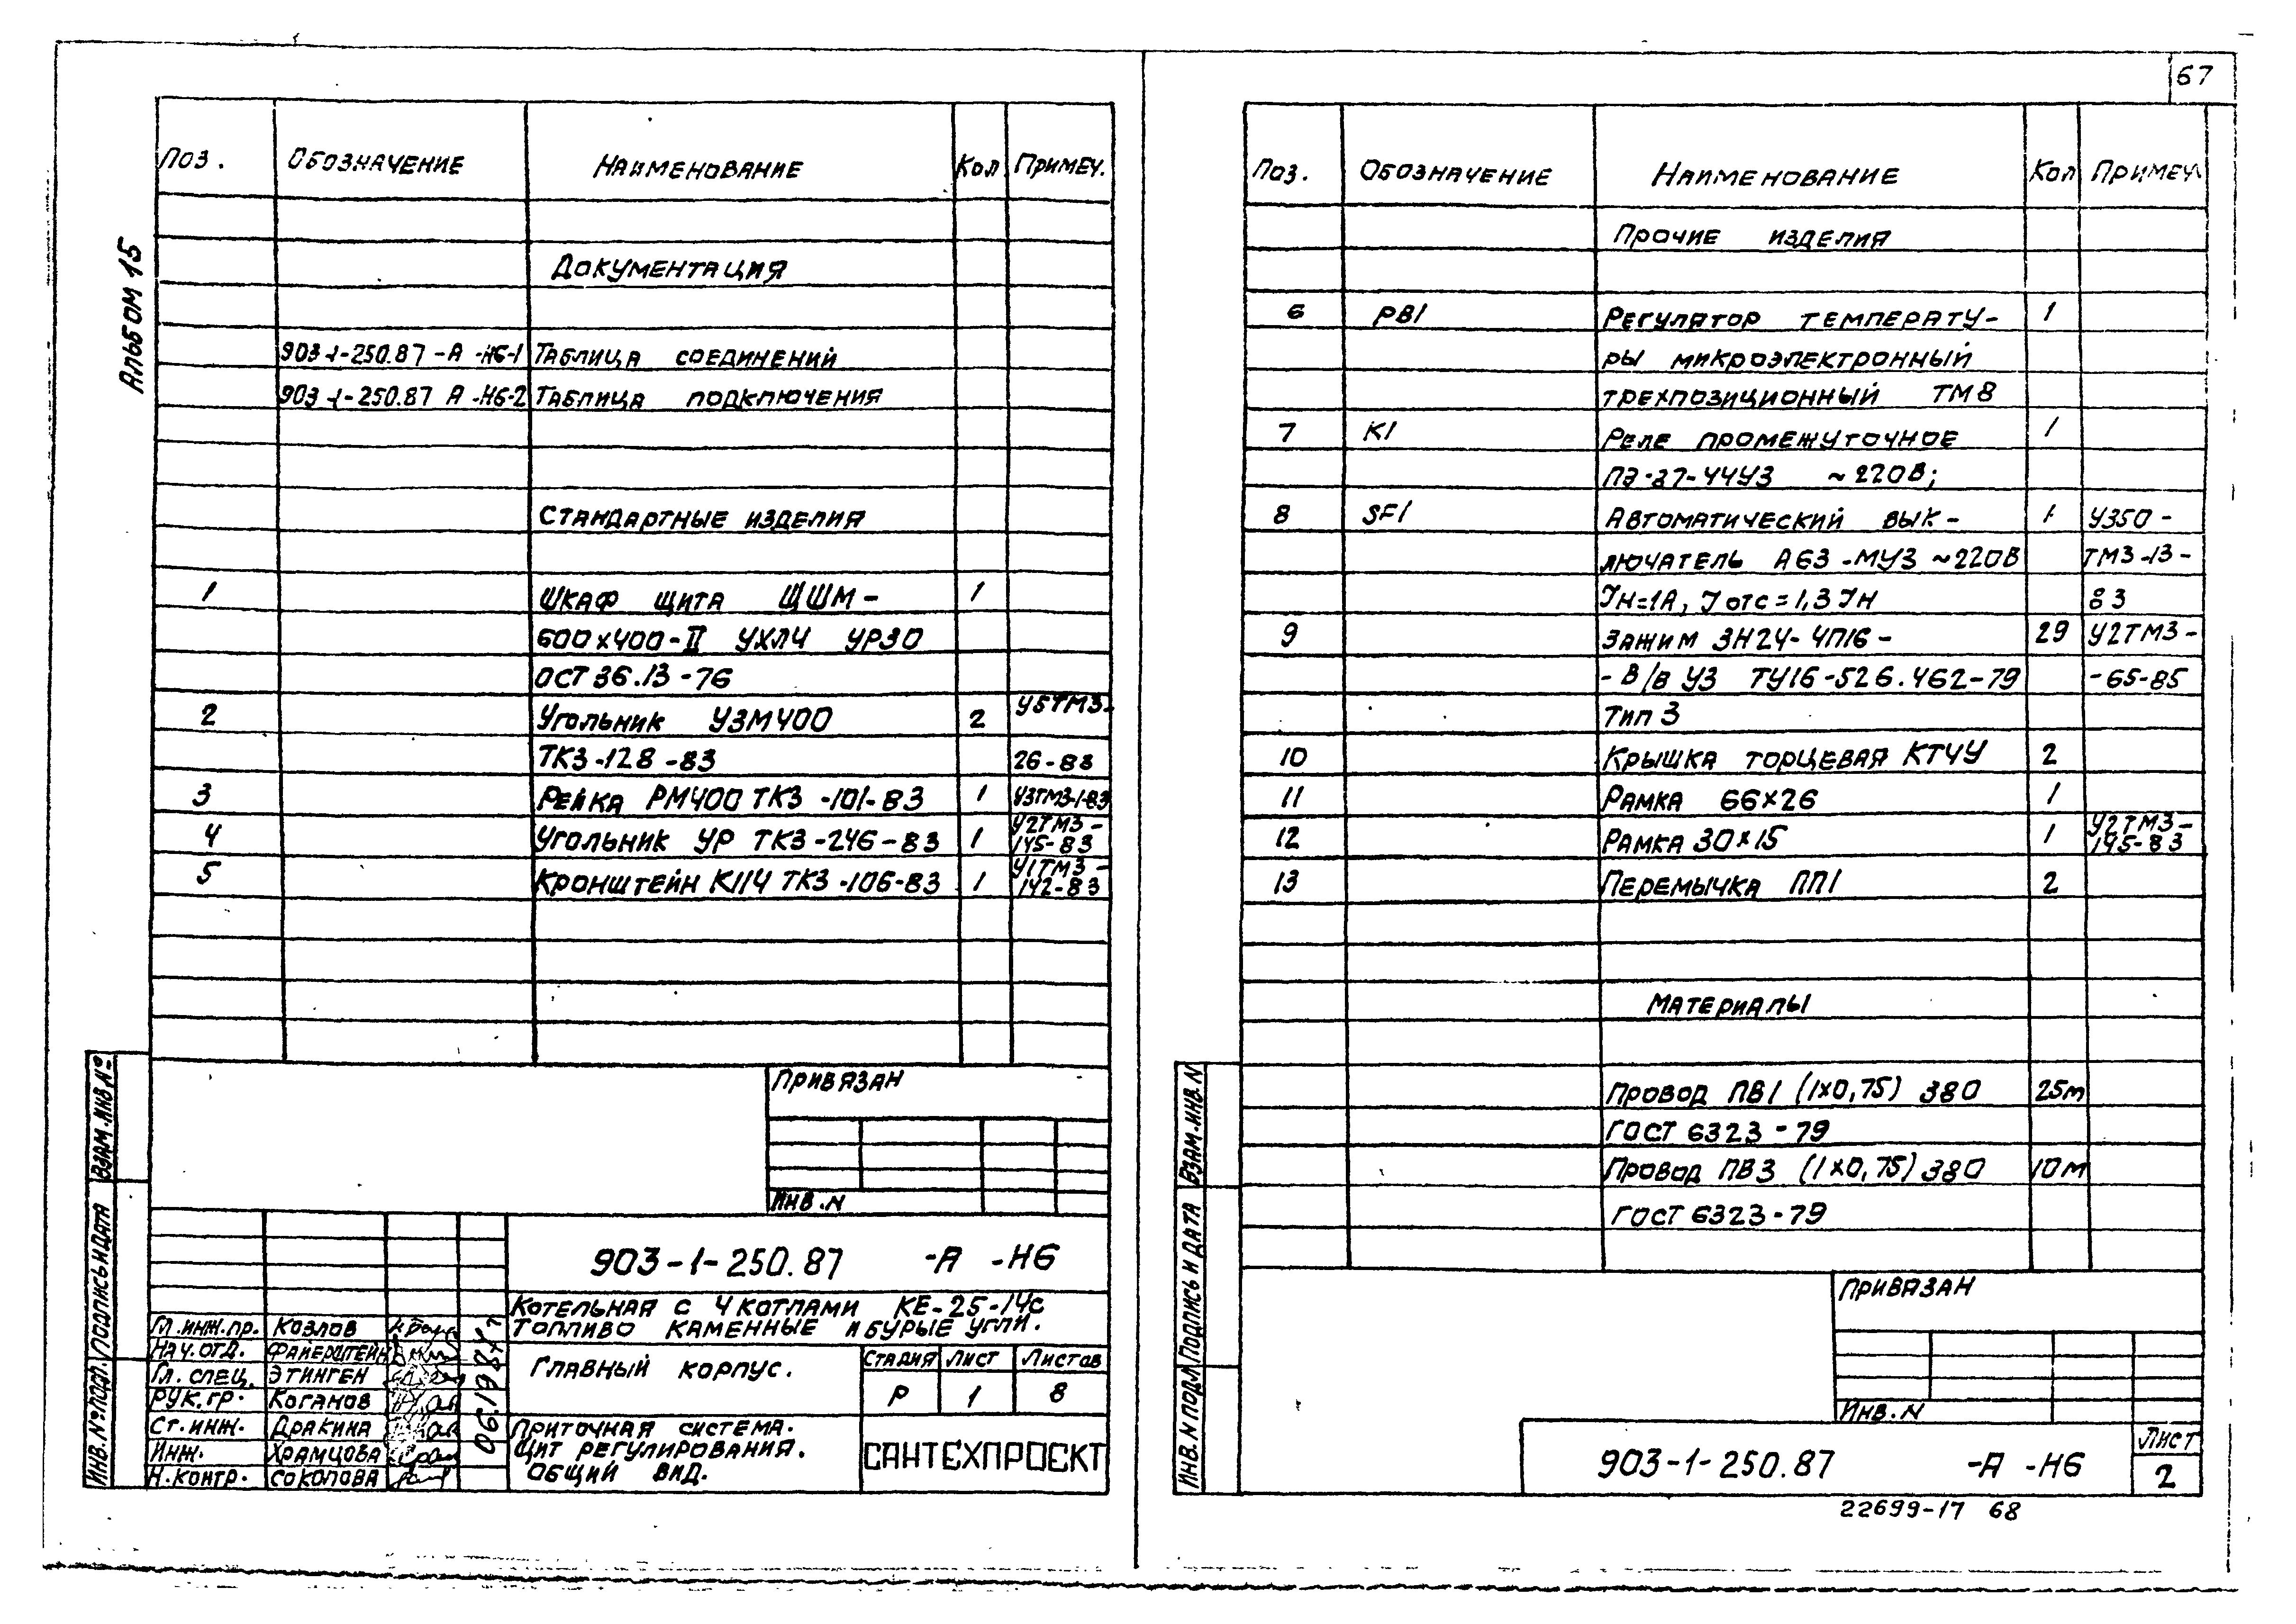 67
Альбом 15
Поз. Обозначение Наименование Кол Примеч.
Документация
903-1-250.87 -А -Н6-1 Таблица соединений
903-1-250.87 А -Н6-2 Таблица подключения
Стандартные изделия
1 Шкаф щита ЩШМ- 1
600х400-II УХЛ4 УР30
ОСТ 36.13-76
2 Угольник УЗМ400 2 У5ТМ3-
ТК3-128-83 26-83
3 Рейка РМ400 ТК3-101-83 1 У3ТМ3-1-83
4 Угольник УР ТК3-246-83 1 У2ТМ3-
145-83
5 Кронштейн К114 ТК3-106-83 1 У1ТМ3-
142-83
Привязан
Инв.N
903-1-250.87 -А -Н6
Котельная с 4 котлами КЕ-25-14с
Топливо каменные и бурые угли.
Гл.инж.пр. Козлов
Нач.отд. Файерштейн
Гл. спец. Этинген
Рук.гр. Коганов
Ст.инж. Дракина
Инж. Храмцова
Н.контр. Соколова
06.1987г
Главный корпус.
Стадия Лист Листов
Р 1 8
Приточная система.
Щит регулирования.
Общий вид.
САНТЕХПРОЕКТ
Инв.№ подл. Подпись и дата Взам.инв.№
Поз. Обозначение Наименование Кол Примеч.
Прочие изделия
6 РВ1 Регулятор температу- 1
ры микроэлектронный
трехпозиционный ТМ8
7 К1 Реле промежуточное 1
ПЭ-37-44У3 ~220В;
8 SF1 Автоматический вык- 1 У350-
лючатель А63-МУ3 ~220В ТМ3-13-
Iн=1А, I отс=1,3 Iн 83
9 Зажим ЗН24-4П16- 29 У2ТМ3-
-В/В У3 ТУ16-526.462-79 -65-85
Тип 3
10 Крышка торцевая КТ4У 2
11 Рамка 66х26 1
12 Рамка 30х15 1 У2ТМ3-
145-83
13 Перемычка ПП1 2
Материалы
Провод ПВ1 (1х0,75) 380 25м
ГОСТ 6323-79
Провод ПВ3 (1х0,75) 380 10м
ГОСТ 6323-79
Привязан
Инв.N
903-1-250.87 -А -Н6
Лист
2
Инв.N подл Подпись и дата Взам.инв.N
22699-17 68